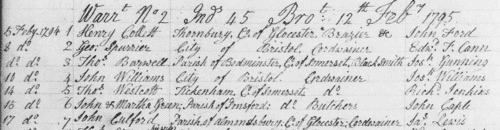 Warrt. No 2 Ind 45 Brot. 12th Feby 1795
5 Feby. 1794 1 Henry Collett Thornbury, C. of Glocester Brazier &c John Ford
8 do. 2 Geo. Spurrier City of Bristol Cordwainer Edwd. T. Cann
do. do. 3 Thos. Barwell Parish of Bedminster, C. of Somerset, Black Smith Jos. Gunning
10 do. 4 John Williams City of Bristol Cordwainer Jos. Williams
14 do. 5 Thos. Westcott Tickenham, C. of Somerset, do. Richd. Jenkins
15 do. 6 John & Martha Green; Parish of Pensford; do. Butchers John Caple
17 do. 7 John Culford Parish of Almondsbury, C. of Glocester; Cordwainer Jas. Lewis